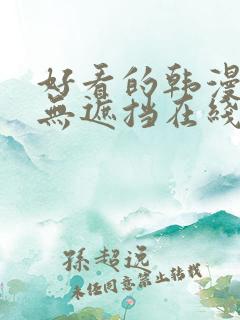 好看的韩漫
無遮挡在线
孫超远
未经同意禁止转载